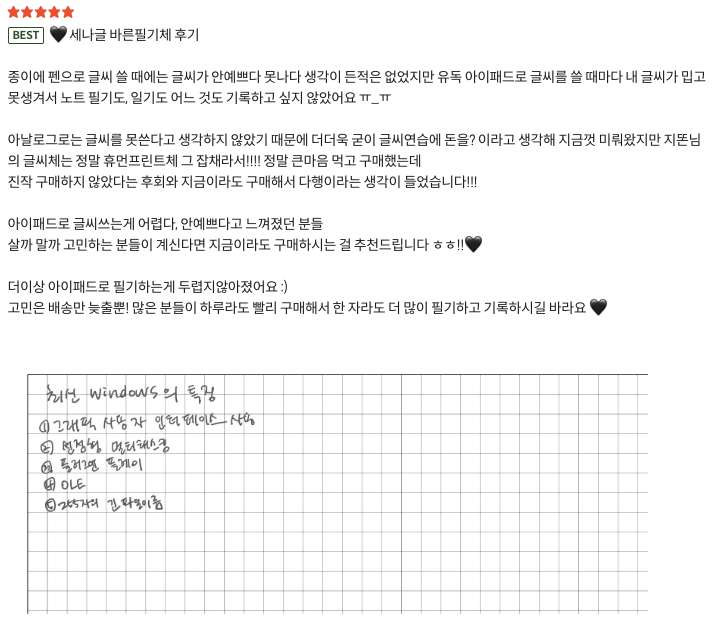 BEST 🖤 세나글 바른필기체 후기
종이에 펜으로 글씨 쓸 때에는 글씨가 안예쁘다 못나다 생각이 든적은 없었지만 유독 아이패드로 글씨를 쓸 때마다 내 글씨가 밉고
못생겨서 노트 필기도, 일기도 어느 것도 기록하고 싶지 않았어요 ㅠ_ㅠ
아날로그로는 글씨를 못쓴다고 생각하지 않았기 때문에 더더욱 굳이 글씨연습에 돈을? 이라고 생각해 지금껏 미뤄왔지만 지똔님
의 글씨체는 정말 휴먼프린트체 그 잡채라서!!!! 정말 큰마음 먹고 구매했는데
진작 구매하지 않았다는 후회와 지금이라도 구매해서 다행이라는 생각이 들었습니다!!!
아이패드로 글씨쓰는게 어렵다, 안예쁘다고 느껴졌던 분들
살까 말까 고민하는 분들이 계신다면 지금이라도 구매하시는 걸 추천드립니다 ㅎㅎ!!🖤
더이상 아이패드로 필기하는게 두렵지않아졌어요 :)
고민은 배송만 늦출뿐! 많은 분들이 하루라도 빨리 구매해서 한 자라도 더 많이 필기하고 기록하시길 바라요 🖤
최신 Windows의 특징
① 그래픽 사용자 인터페이스 사용
② 선점형 멀티태스킹
③ 플러그앤 플레이
④ OLE
⑤ 255자의 긴 파일이름